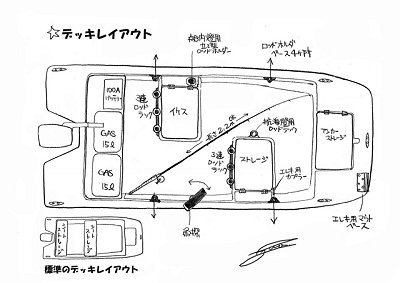 ☆デッキレイアウト
ロッドホルダ
ベース4ヶ所
ロッドホルダー
100A
バッテリー
3連
ロッド
ラック
イケス
GAS
15ℓ
GAS
15ℓ
長さ2.2m
ロッドラック
3連
ロッド
ラック
ストレージ
アンカー
ストレージ
エレキ用
カプラー
エレキ用マウント
ベース
魚探
シート
ストレージ
シート
ストレージ
標準のデッキレイアウト